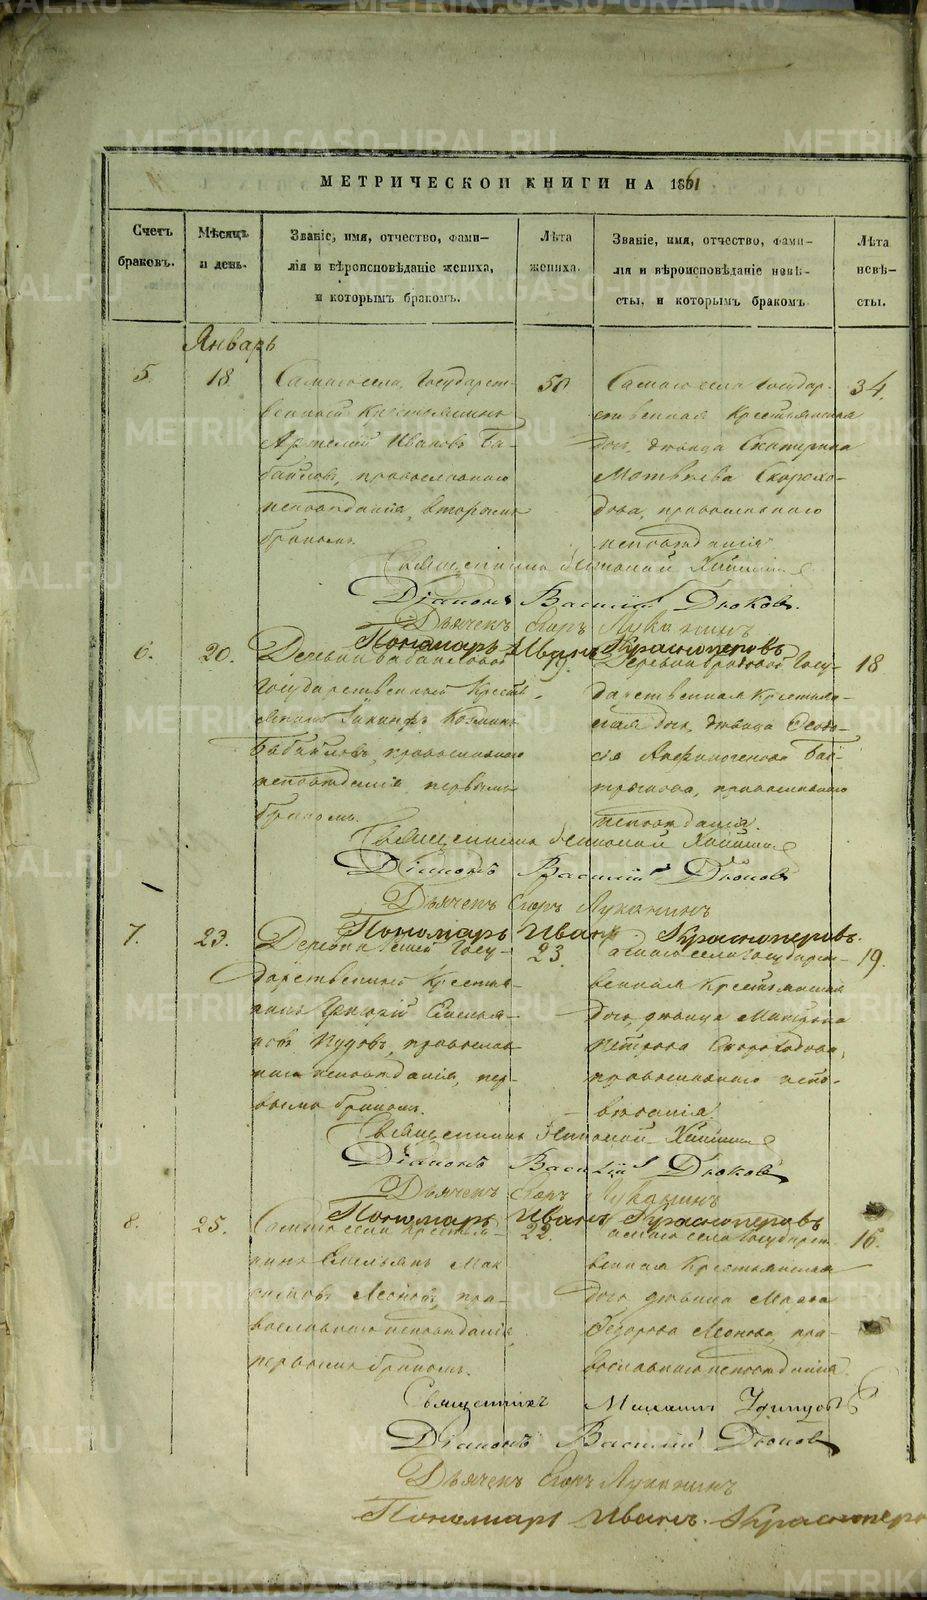 МЕТРИЧЕСКОЙ КНИГИ НА 1861
Счетъ браковъ.
Мѣсяцъ и день.
Званіе, имя, отчество, фами-
лія и вѣроисповѣданіе жениха,
и которымъ бракомъ.
Лѣта жениха.
Званіе, имя, отчество, фами-
лія и вѣроисповѣданіе невѣ-
сты, и которымъ бракомъ
Лѣта невѣ-
сты.
Январь
5. 18.
Самаго села Государст-
венный Крестьянинъ
Артемій Ивановъ Ба-
байловъ, православнаго
исповѣданія, вторымъ
бракомъ.
50
Самаго села Государ-
ственная Крестьянская
дочь, дѣвица Екатерина
Матвѣева Скорохо-
дова, православнаго
исповѣданія
34.
Священникъ
Діаконъ Василій Дюковъ.
Дьячекъ Егоръ Луканинъ
Пономарь Иванъ Красноперовъ
6. 20.
Деревни Бабайловой
Государственный Кресть-
янинъ Козминъ
Бабайловъ, православнаго
исповѣданія, первымъ
бракомъ.
19.
Деревни Госу-
дарственная Крестьян-
ская дочь, дѣвица Ѳеодо-
сія Анфиногенова Бай-
, православнаго
исповѣданія.
18
Священникъ
Діаконъ Василій Дюковъ
Дьячекъ Егоръ Луканинъ
Пономарь Иванъ Красноперовъ.
7. 23.
Деревни Госу-
дарственный Крестья-
нинъ Григорій Емелья-
новъ Пудовъ, православ-
наго исповѣданія, пер-
вымъ бракомъ.
23.
Самаго села Государст-
венная Крестьянская
дочь, дѣвица
Петрова Скороходова,
православнаго испо-
вѣданія.
19.
Священникъ
Діаконъ Василій Дюковъ
Дьячекъ Егоръ Луканинъ
Пономарь Иванъ Красноперовъ
8. 25.
Самаго села Крестья-
нинъ Емельянъ Мак-
симовъ Леоновъ, пра-
вославнаго исповѣданія,
первымъ бракомъ.
22.
Самаго села Государст-
венная Крестьянская
дочь, дѣвица
Ѳедорова Леонова, пра-
вославнаго исповѣданія.
16.
Священникъ
Діаконъ Василій Дюковъ
Дьячекъ Егоръ Луканинъ
Пономарь Иванъ Красноперо
METRIKI.GASO-URAL.RU